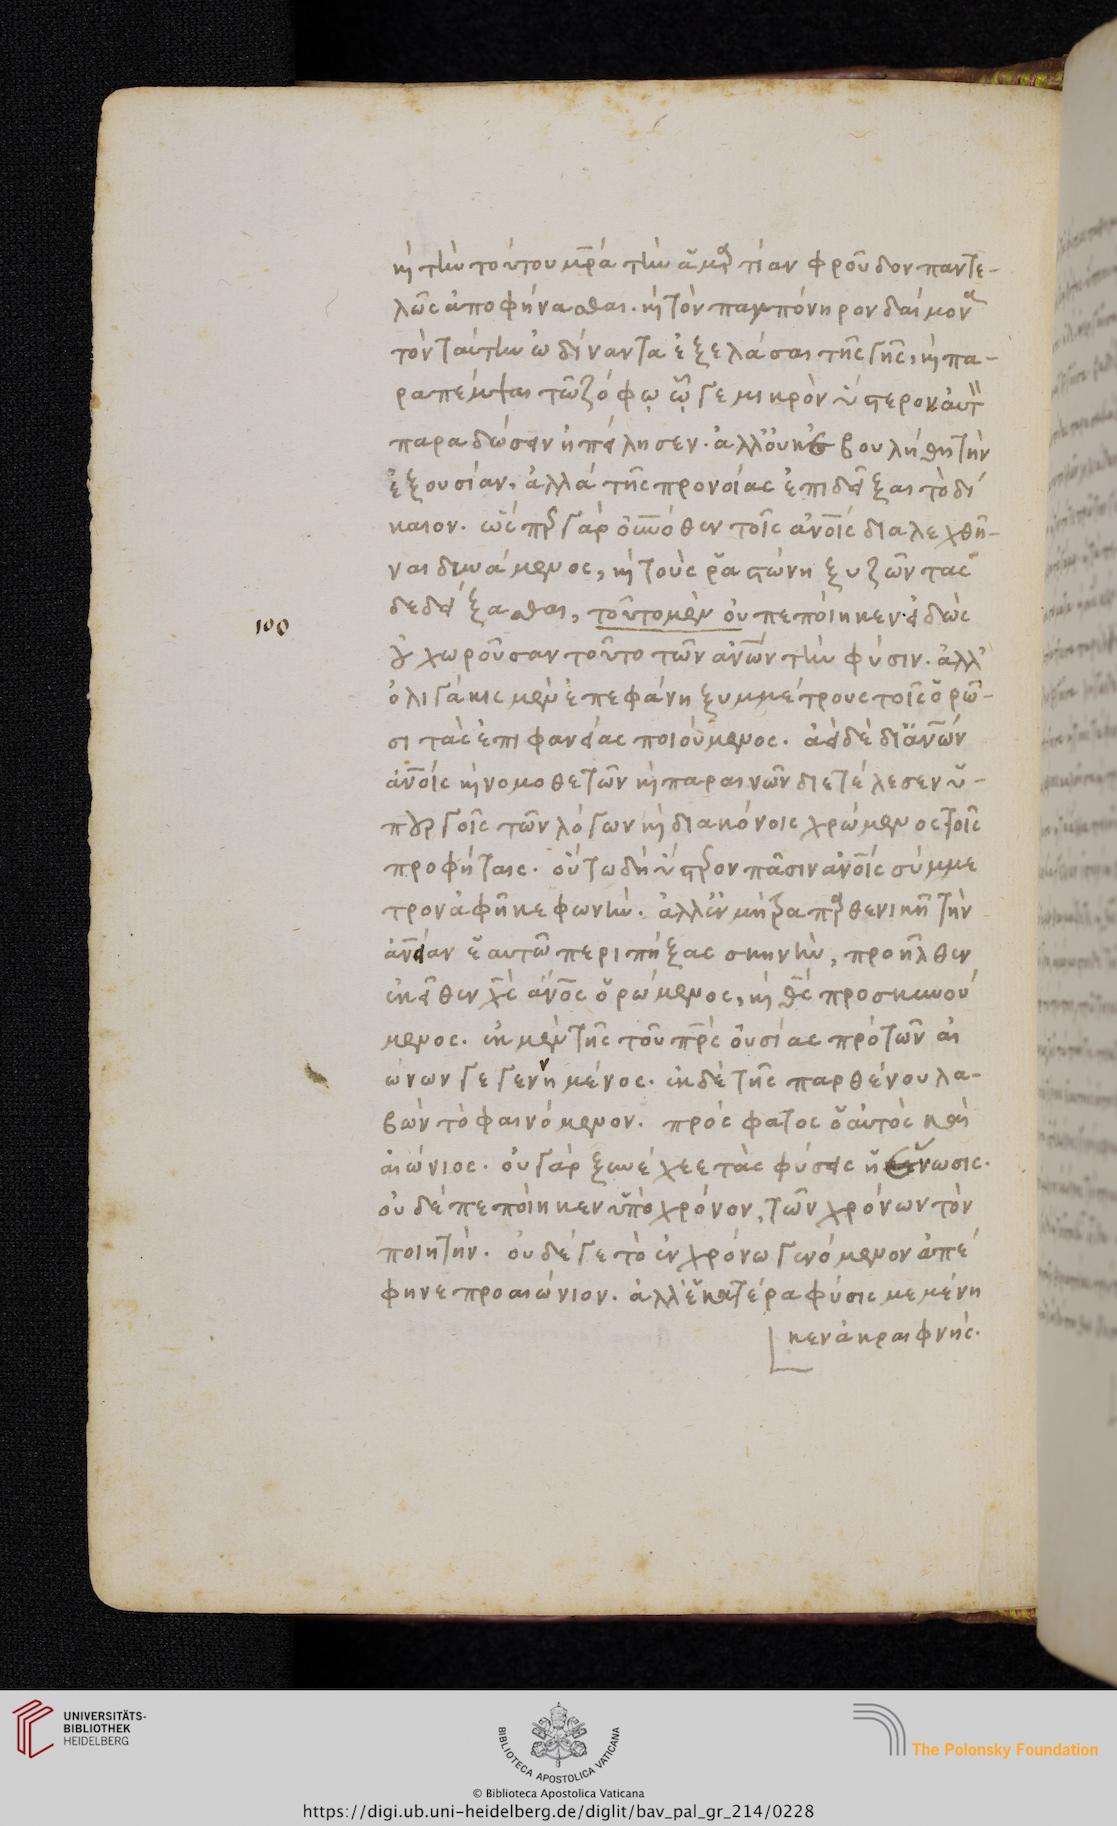 κ(αὶ) τὴν τούτου μ(ητέ)ρα τὴν ἁμαρτίαν φροῦδον παντε-
λῶς ἀποφῆνασθαι. κ(αὶ) τὸν παμπόνηρον δαίμονα
τὸν ταύτην ὠδίναντα ἐξελάσαι τῆς γῆς, κ(αὶ) πα-
ραπέμψαι τῶ ζόφῳ ᾧ γε μικρὸν ὕστερον αὐτὸν
παραδώσειν ἠπείλησεν. ἀλλ' οὐκ ἐβουλήθη τὴν
ἐξουσίαν, ἀλλὰ τῆς προνοίας ἐπιδεῖξαι τὸ δί
καιον. ὥσπερ γὰρ οὐ(ρα)νόθεν τοῖς ἀν(θρώπ)οις διαλεχθῆ-
ναι δυνάμενος, κ(αὶ) τοὺς ῥαστώνη ξυζῶντας
δεδείξασθαι, τοῦτο μὲν οὐ πεποίηκεν εἰδὼς
100
οὐ χωροῦσαν τοῦτο τῶν ἀν(θρώπ)ων τὴν φύσιν. ἀλλ'
ὀλιγάκις μὲν ἐπεφάνη ξυμμέτρους τοῖς ὁρῶ-
σι τὰς ἐπιφανείας ποιούμενος. ἀεὶ δὲ δι' ἀν(θρώπ)ων
ἀν(θρώπ)οις κ(αὶ) νομοθετῶν κ(αὶ) παραινῶν διετέλεσεν ὑ-
πουργοῖς τῶν λόγων κ(αὶ) διακόνοις χρώμενος τοῖς
προφήταις. οὕτω δὴ ὕστερον πᾶσιν ἀν(θρώπ)οις σύμμε
τρον ἀφῆκε φωνήν. ἀλλ' ἐν μήτρα παρθενικῆ τὴν
ἀν(θρωπ)είαν ἑαυτῶ περιπήξας σκηνὴν, προῆλθεν
ἐκεῖθεν χ(ριστὸ)ς ἄν(θρωπ)ος ὁρώμενος, κ(αὶ) θ(εὸ)ς προσκυνού
μενος. ἐκ μὲν τῆς τοῦ π(ατ)ρὸς οὐσίας πρὸ τῶν αἰ
ώνων γεγεννημένος. ἐκ δὲ τῆς παρθένου λα-
βὼν τὸ φαινόμενον. πρόσφατος ὁ αὐτὸς καὶ
αἰώνιος. οὐ γὰρ ξυνέχεε τὰς φύσεις ἡ ἕνωσις.
οὐδὲ πεποίηκεν ὑπὸ χρόνον, τῶν χρόνων τὸν
ποιητήν. οὐδέ γε τὸ ἐν χρόνω γενόμενον ἀπέ
φηνε προαιώνιον. ἀλλ' ἑκατέρα φύσις μεμένη
κεν ἀκραιφνής.
UNIVERSITÄTS-
BIBLIOTHEK
HEIDELBERG
BIBLIOTECA APOSTOLICA VATICANA
The Polonsky Foundation
© Biblioteca Apostolica Vaticana
https://digi.ub.uni-heidelberg.de/diglit/bav_pal_gr_214/0228